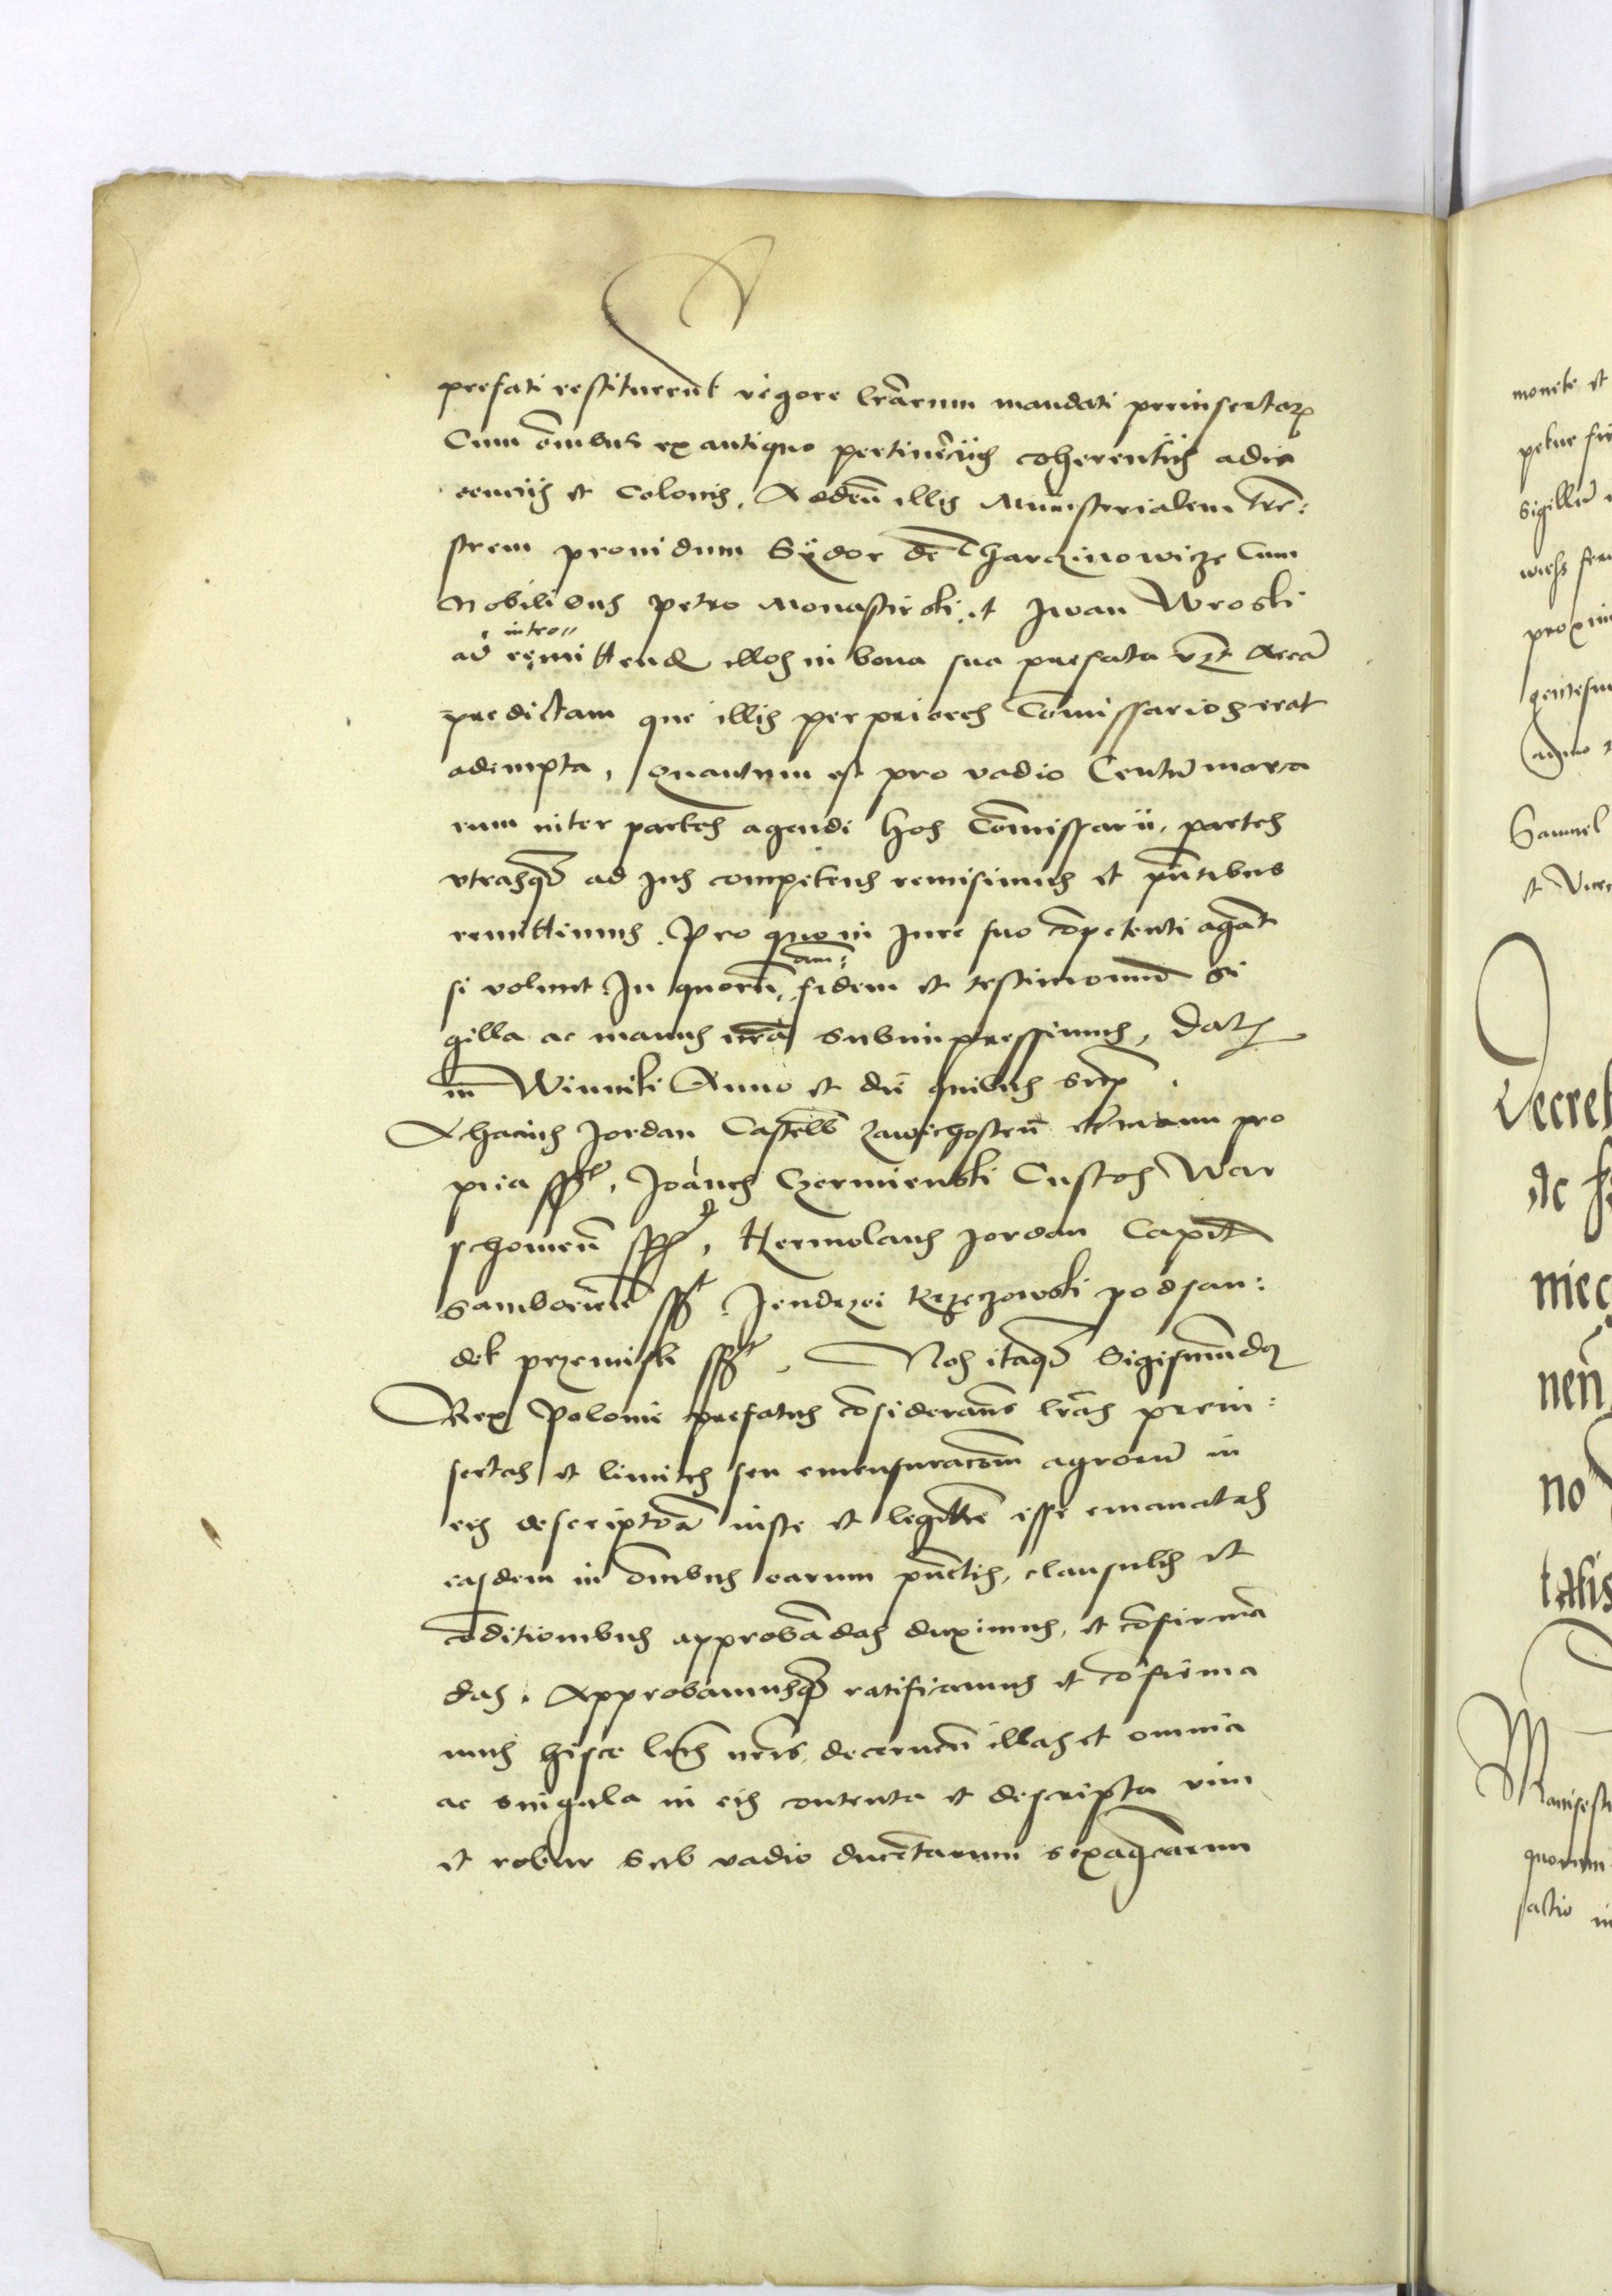 prefati restituerunt vigore lrarum mandati preinsertarꝫ
Cum omibus ex antiquo pertinencijs coherentijs adia
cencijs et Colonis. Addeñ illis Ministerialem tre:
strem prouidum Sÿdor de Tharczinowicze Cum
Nobilibus Petro Monastirski et Jwan Wroski
intro
ad remittend illos in bona sua prefata vꝫt aream
predictam que illis per priores Comissarios erat
adempta, Quantum est pro vadio Centū marca
rum inter partes agendi hos Comissarii, partes
vtrasqꝫ ad Jus competens remisimus et pñtibus
remittimus. Pro quo in Jure suo copetenti agāt
am:
si volunt. In quorū fidem et testimoniū Si
gilla ac manus nras subimpressimus, Datꝫ
in Winniki Anno et die quibus supra.
Achacius Jordan Castell Zawichosteñ manu pro
pria sspt, Joānes Czermienski Custos War
schouieñ sspt, Hermolaus Jordan Capit
Samborieñ sspt, Jendrzei Rzeczowski podsan:
dek przemiski sspt, Nos itaqꝫ Sigismūdꝰ
Rex Polonie prefatus cōsiderans lras prein:
sertas et limites seu emensuracōm agrorū in
eis descriptorū iuste et legittie esse emanatas
easdem in oībus earum pūctis, clausulis et
cōditionibus approbādas duximus, et cōfirmā
das. Approbamusqꝫ ratificamus et cōfirma
mus hisce lris nris, decerneñ illas et omnia
ac singula in eis contenta et descripta vim
et robur sub vadio ducētarum sexagenarum
monete et
sigillū
proxim
Anno
Samuel
et Vice
Decret
nen
no
talis
Manifest
quorum
factio in